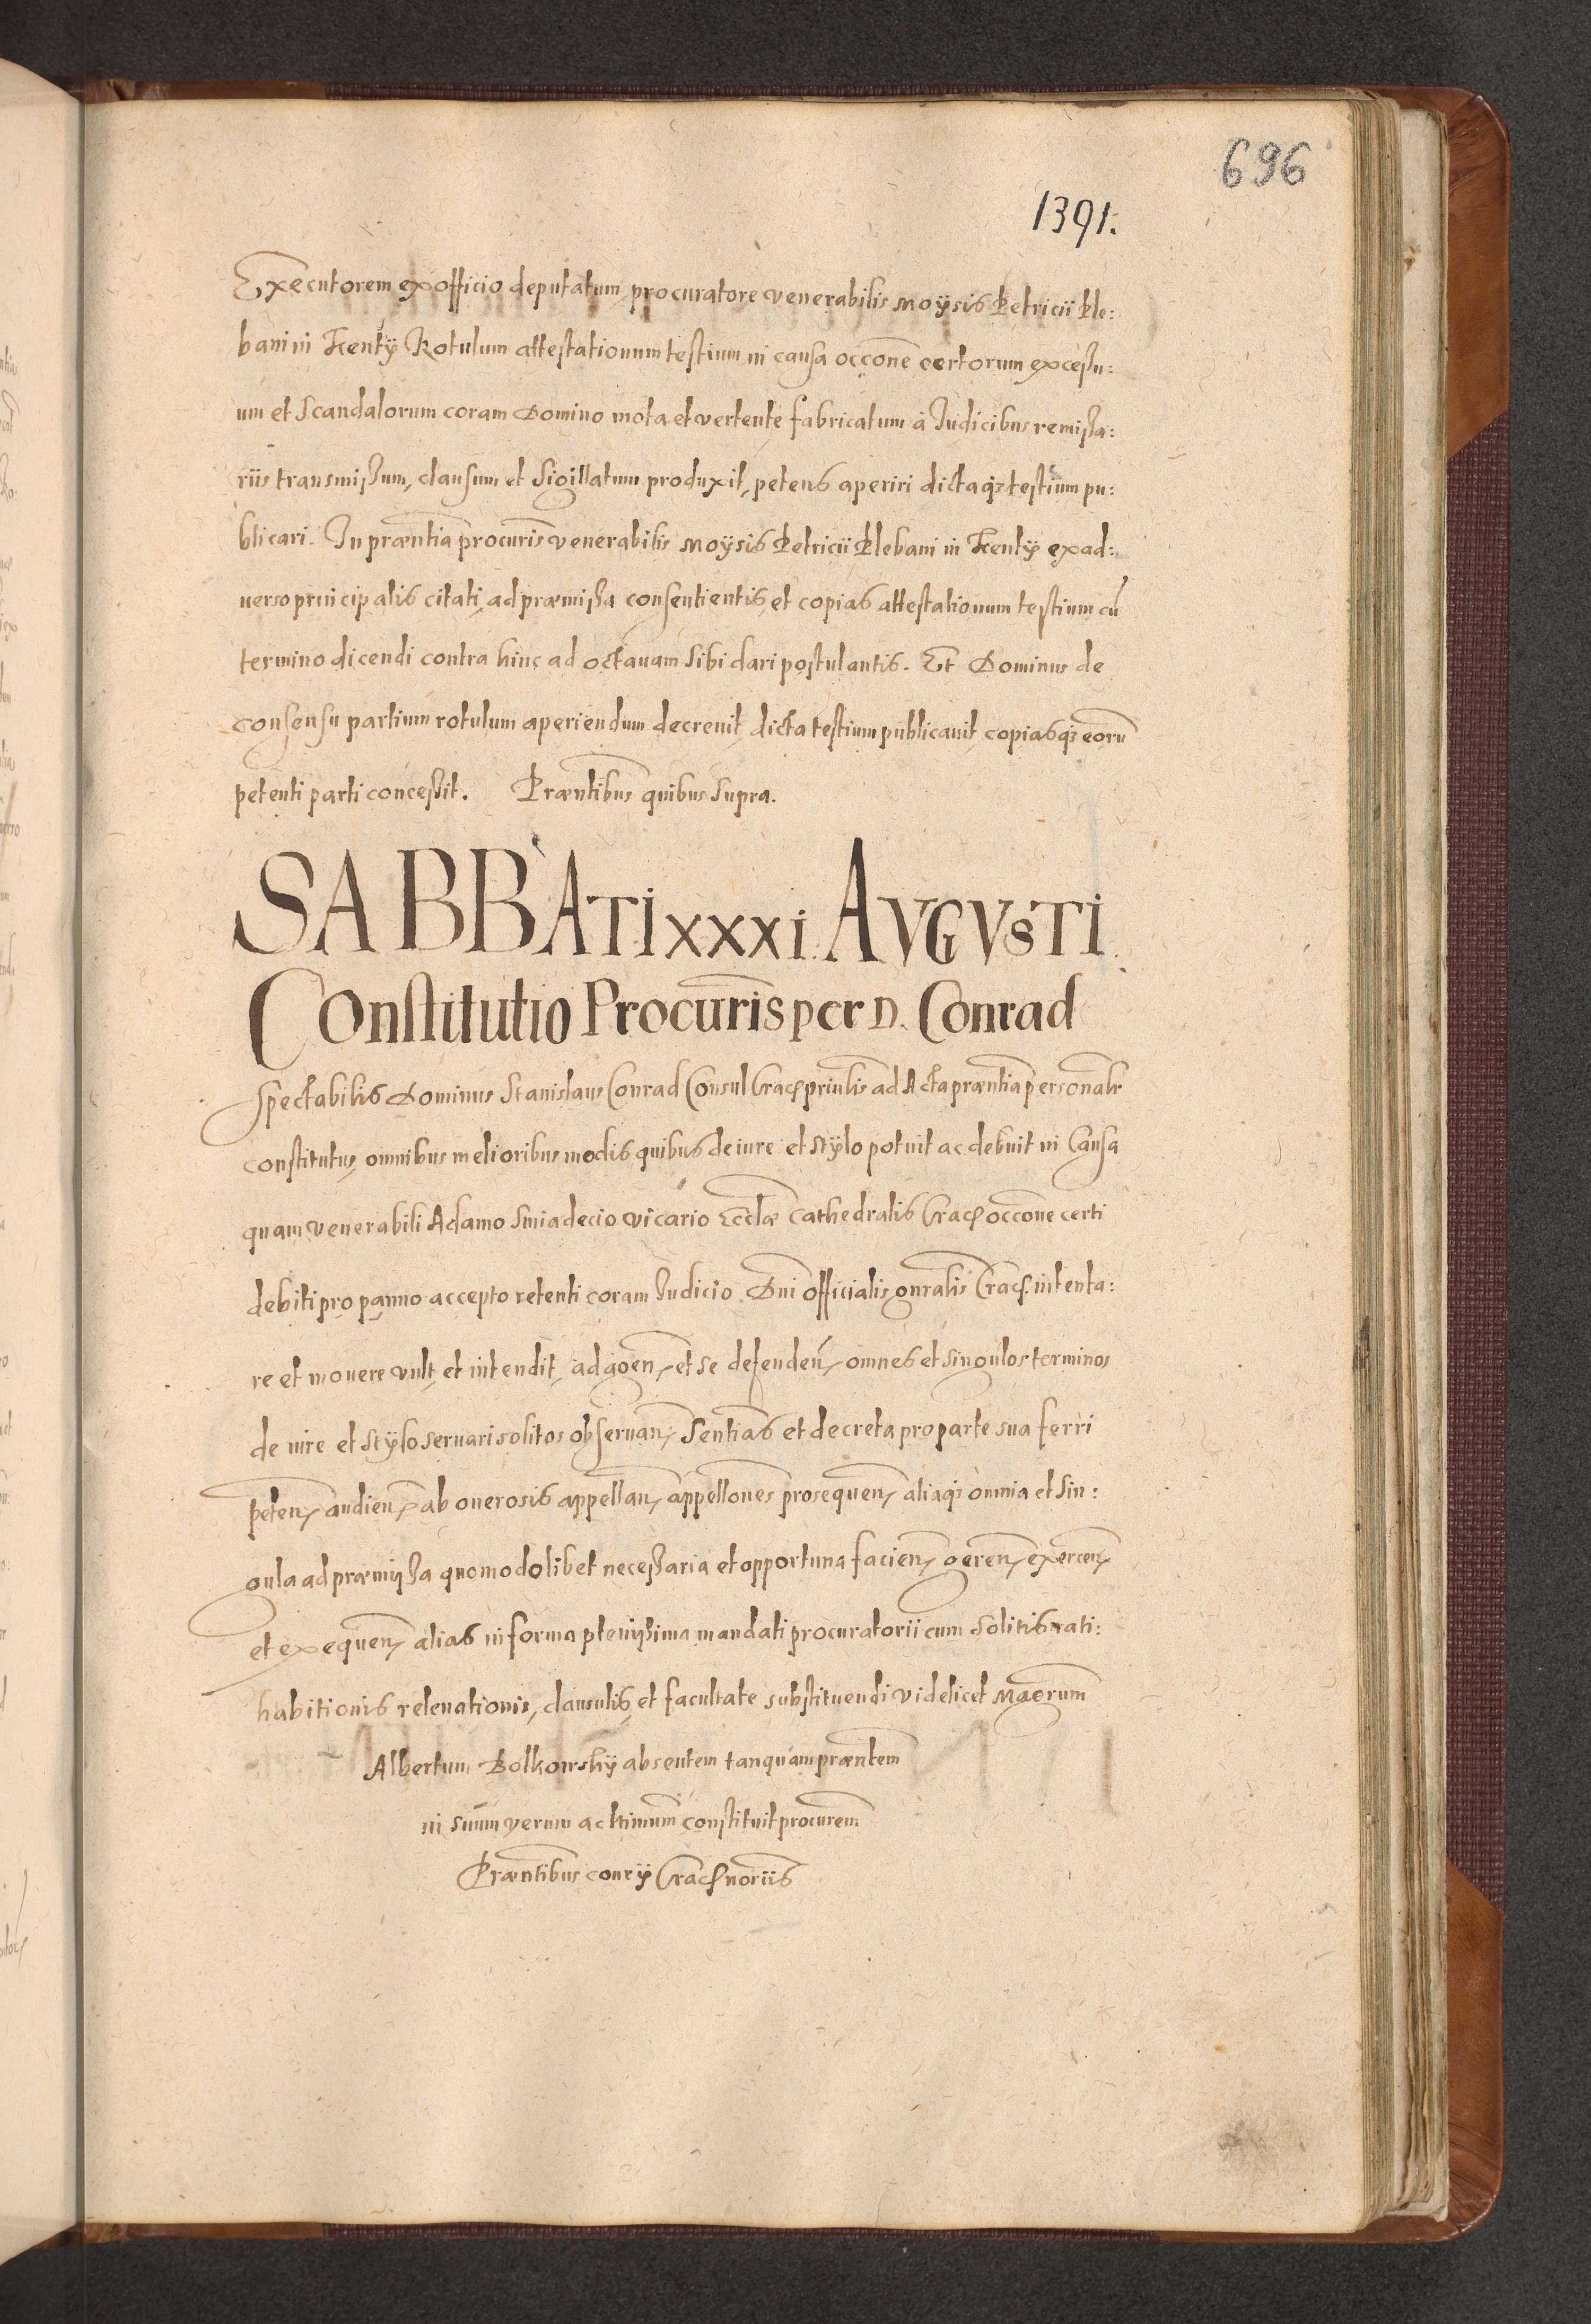 696
1391.
Executorem ex officio deputatum procuratore venerabilis Moÿsis Petricii Ple:
bani in Kentÿ Rotulum attestationum testium in causa occone certorum excessu:
um et scandalorum coram Domino mota et vertente fabricatum à Iudicibus remissa:
riis transmissum, clausum et sigillatum produxit, petens aperiri dictaqȝ testium pu:
blicari. In præntia procuris venerabilis Moÿsis Petricii Plebani in Kentÿ ex ad:
uerso principalis citati, ad præmissa consentientis, et copias attestationum testium cū
termino dicendi contra hinc ad octauam sibi dari postulantis. Et Dominus de
consensu partium rotulum aperiendum decreuit, dicta testium publicauit, copiasqȝ eorū
petenti parti concessit. Præntibus quibus supra.
SABBATI XXXI AVGVSTI
Constitutio Procuris per D. Conrad
Spectabilis Dominus Stanislaus Conrad Consul Crac priūlis ad Acta præntia personalr
constitutus, omnibus melioribus modis quibus de iure et stÿlo potuit ac debuit in Causa
quam venerabili Adamo Smiadecio vicario Ecclæ Cathedralis Crac occone certi
debiti pro panno accepto retenti coram Iudicio Dni officialis gnralis Crac. intenta:
re et mouere vult, et intendit, ad agen, et se defendeń, omnes et singulos terminos
de iure et stÿlo seruari solitos obseruan, sentias et decreta pro parte sua ferri
peten, audien, ab onerosis appellan, appellones prosequen, aliaqȝ omnia et sin:
gula ad præmissa quomodolibet necessaria et opportuna facien, geren, exercen,
et exequen, alias in forma plenissima mandati procuratorii cum solitis rati:
habitionis releuationis, clausulis, et facultate substituendi videlicet Magrum
Albertum Bolkowskÿ absentem tanquam præntem
in suum verum ac ltimum constituit procurem
Præntibus conrÿ Crac noriis